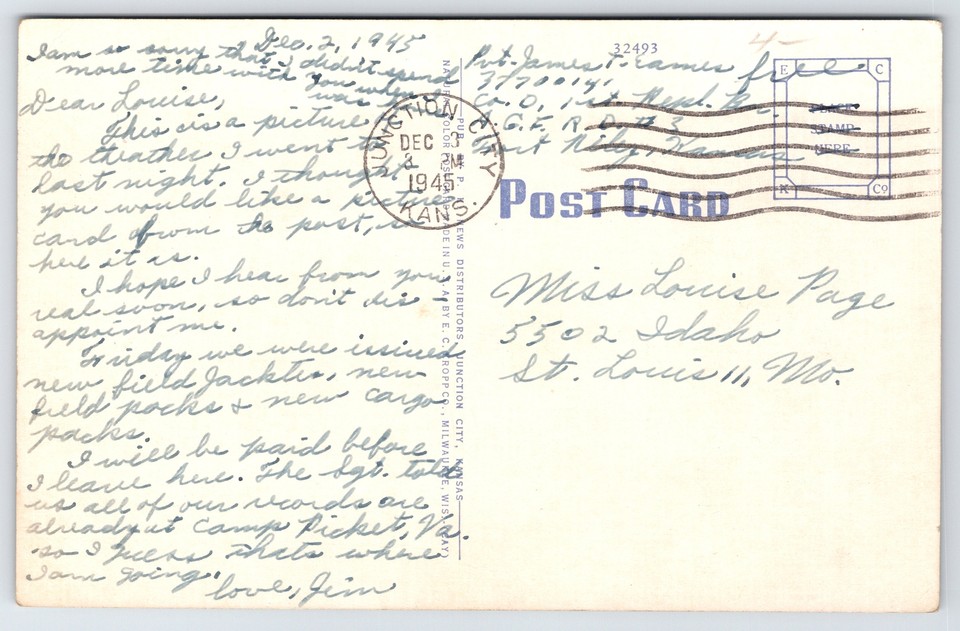 Dec. 2, 1945
I am so sorry that I didn't spend
more time with you when
was
Dear Louise,
This is a picture
the theather I went to
last night. I thought
you would like a picture
card from the post, so
here it is.
I hope I hear from you
real soon, so don't dis-
appoint me.
Friday we were issiued
new field Jackets, new
field packs & new cargo
packs.
I will be paid before
I leave here. The Sgt. told
us all of our records are
already at Camp Picket, Va.
so I guess thats where
I am going.
love, Jim
PUB.
NEWS DISTRIBUTORS, JUNCTION CITY, KANSAS
MADE IN U.S.A. BY E. C. KROPP CO., MILWAUKEE, WIS.
JUNCTION CITY
DEC 3
8 PM
1945
KANS.
32493
4-
Pvt. James T. Eames
37700141
Co. D, 1st Repl. Bn.
G. F. R. D. # 3
Fort Riley, Kansas
free
E C
PLACE
STAMP
HERE
K Co
POST CARD
Miss Louise Page
5502 Idaho
St. Louis 11, Mo.